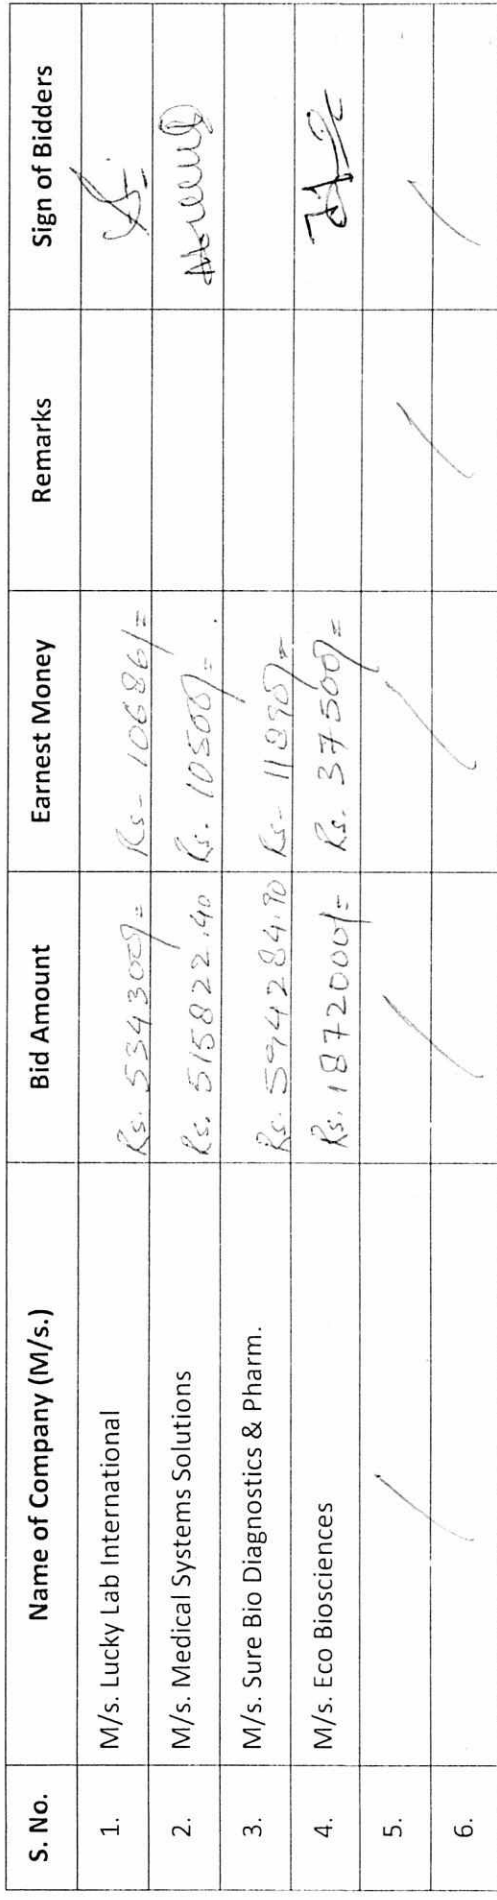 S. No. Name of Company (M/s.) Bid Amount Earnest Money Remarks Sign of Bidders
1. M/s. Lucky Lab International Rs. 534300/= Rs- 10686/=
2. M/s. Medical Systems Solutions Rs. 515822.40 Rs. 10500/=.
3. M/s. Sure Bio Diagnostics & Pharm. Rs. 594284.90 Rs- 11890/=
4. M/s. Eco Biosciences Rs. 1872000/= Rs. 37500/=
5.
6.